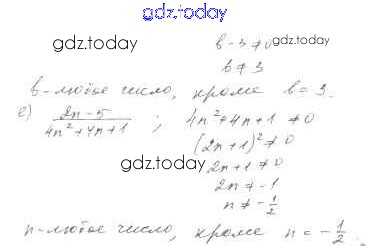 gdz.today
gdz.today
b-3≠0 gdz.today
b≠3
b-любое число, кроме b=3.
е) (2n-5)/(4n²+4n+1) ; 4n²+4n+1≠0
(2n+1)²≠0
gdz.today
gdz.today
2n+1≠0
2n≠-1
n≠-1/2
n-любое число, кроме n=-1/2.